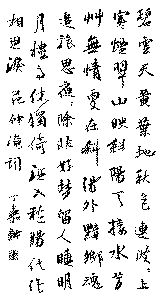 碧雲天黃葉地秋色連波々上
寒煙翠山映斜陽天接水芳
艸無情更在斜陽外黯鄉魂
追旅思夜々除非好夢留人睡明
月樓高休獨倚酒入愁腸化作
相思淚 范仲淹詞